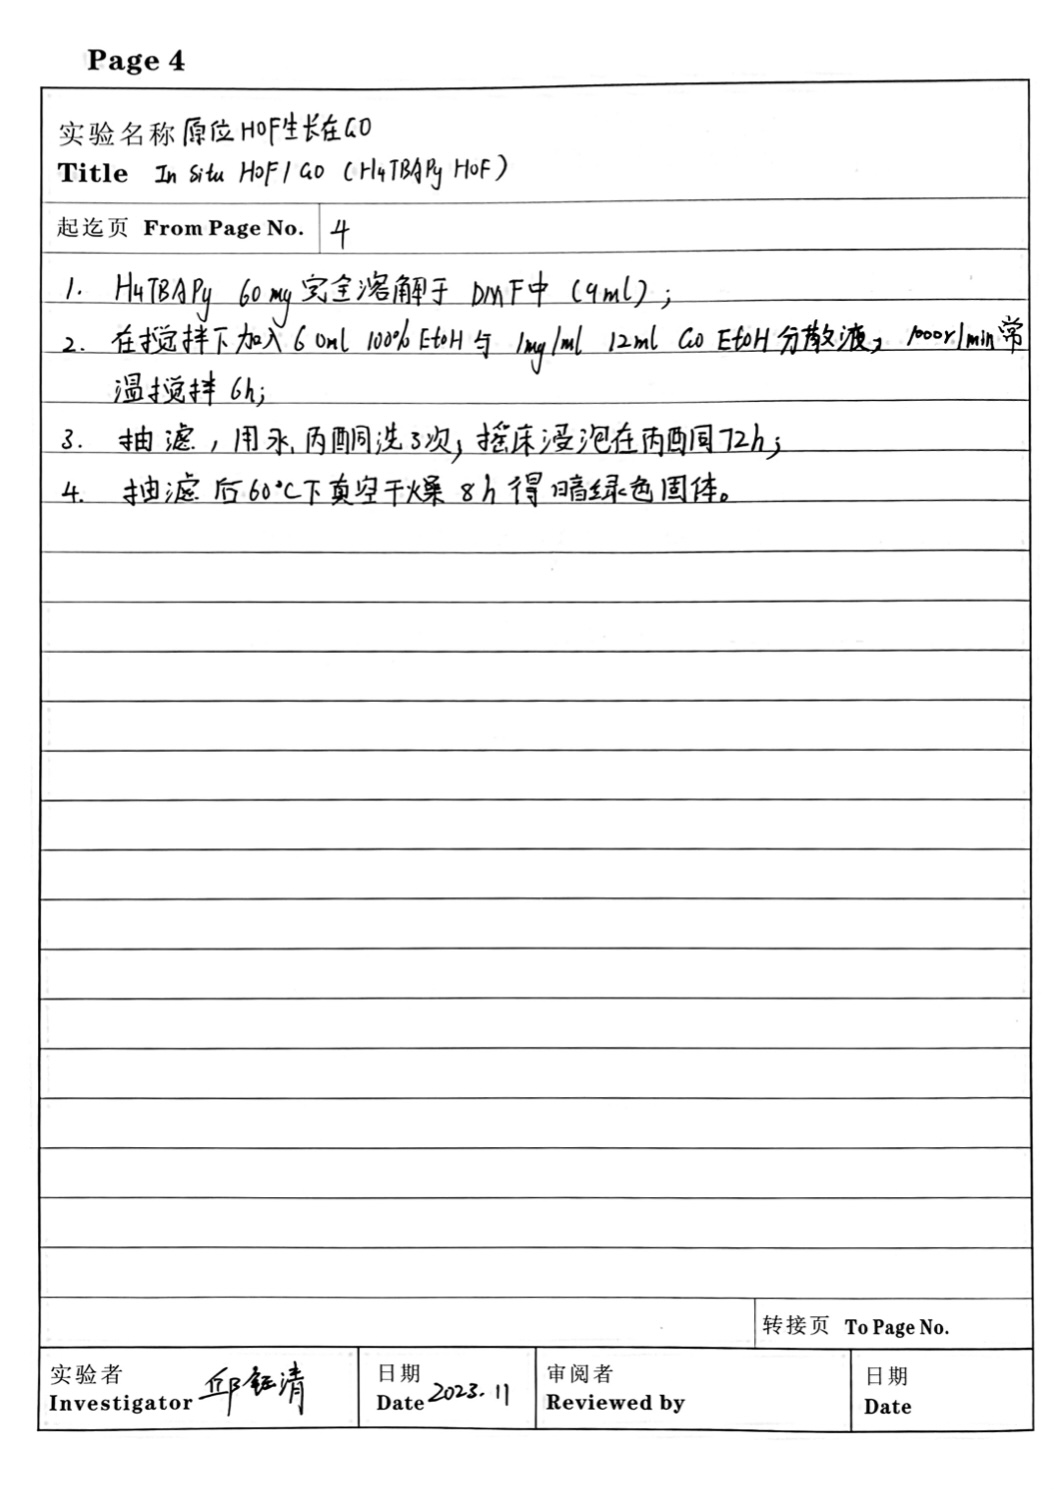 Page 4
实验名称 原位HOF生长在GO
Title In Situ HOF/GO (H4TBAPy HOF)
起迄页 From Page No. 4
1. H4TBAPy 60mg 完全溶解于 DMF中 (9ml);
2. 在搅拌下加入60ml 100% EtOH与 1mg/ml 12ml GO EtOH分散液, 1000r/min常
温搅拌6h;
3. 抽滤,用水、丙酮洗3次;摇床浸泡在丙酮72h;
4. 抽滤后60°C下真空干燥 8h得暗绿色固体。
转接页 To Page No.
实验者 日期 审阅者 日期
Investigator 邱钰清 Date 2023.11 Reviewed by Date